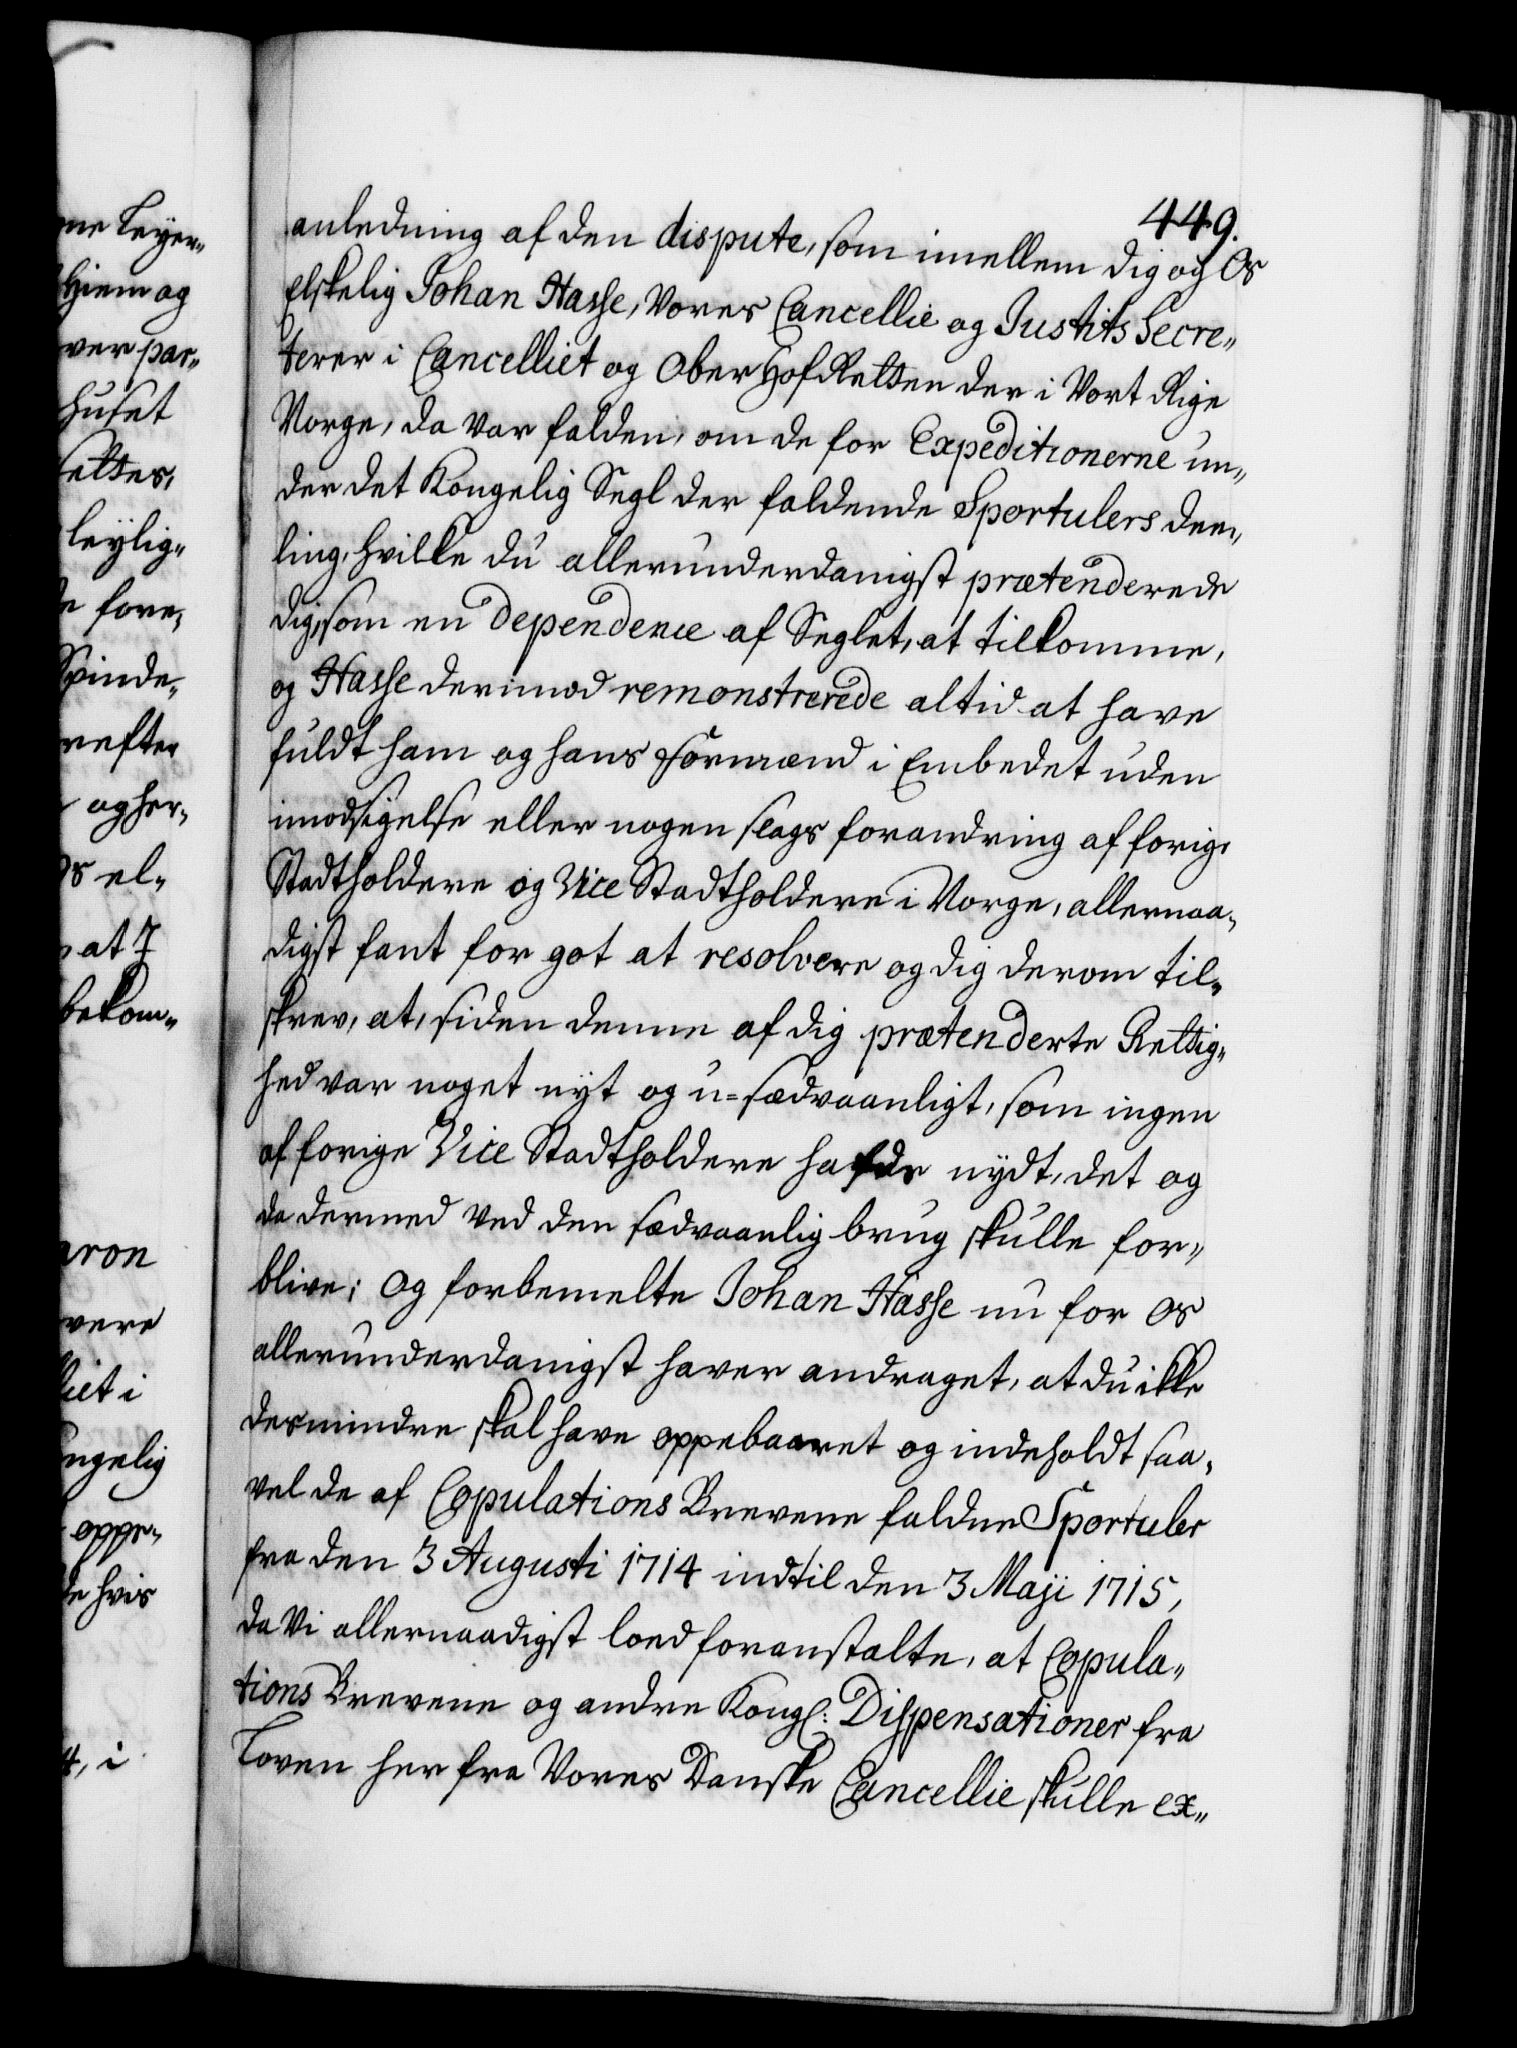 449.
anledning af den dispute, som imellem dig og Os
Elskelig Johan Hasse, Vores Cancellie og Justits Secre„
terer i Cancelliet og Ober Hof Retten der i Vort Rige
Norge, da var falden, om de for Expeditionerne un„
der det Kongelig Segl der faldende Sportulers dee„
ling, hvilke du allerunderdanigst prætenderede
dig, som en dependence af Seglet, at tilkomme,
og Hasse derimod remonstrerede altid at have
fuldt ham og hans Formænd i Embedet uden
imodsigelse eller nogen slags forandring af forige
Stadtholdere og Vice Stadtholdere i Norge, allernaa„
digst fant for got at resolvere og dig derom til„
skrev, at, siden denne af dig prætenderte Rettig„
hed var noget nyt og u-sædvaanligt, som ingen
af forige Vice Stadtholdere hafde nydt, det og
da dermed ved den sædvaanlig brug skulle for„
blive; Og forbemelte Johan Hasse nu for Os
allerunderdanigst haver andraget, at du ikke
desmindre skal have oppebaaret og indeholdt saa„
vel de af Copulations Brevene faldne Sportuler
fra den 3 Augusti 1714 indtil den 3 Maji 1715,
da Vi allernaadigst loed foranstalte, at Copula„
tions Brevene og andre Kongl: Dispensationer fra
Loven her fra Vores Danske Cancellie skulle ex„